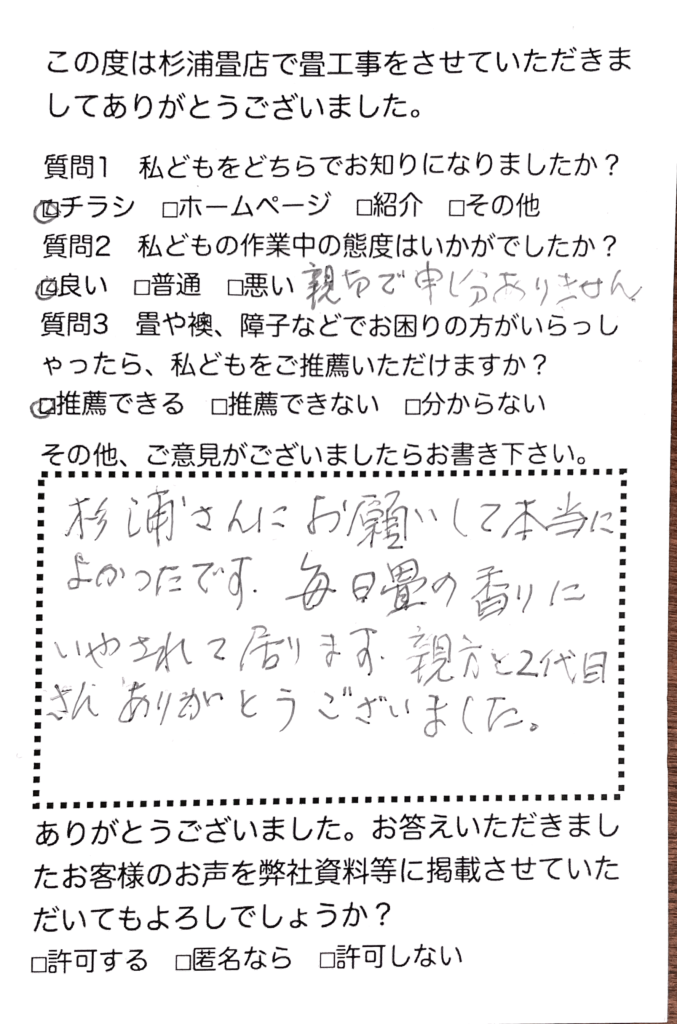 この度は杉浦畳店で畳工事をさせていただきま
してありがとうございました。
質問1　私どもをどちらでお知りになりましたか？
□チラシ　□ホームページ　□紹介　□その他
質問2　私どもの作業中の態度はいかがでしたか？
□良い　□普通　□悪い 親切で申し分ありません
質問3　畳や襖、障子などでお困りの方がいらっし
ゃったら、私どもをご推薦いただけますか？
□推薦できる　□推薦できない　□分からない
その他、ご意見がございましたらお書き下さい。
杉浦さんにお願いして本当に
よかったです。毎日畳の香りに
いやされて居ります。親方と2代目
さんありがとうございました。
ありがとうございました。お答えいただきまし
たお客様のお声を弊社資料等に掲載させていた
だいてもよろしでしょうか？
□許可する　□匿名なら　□許可しない